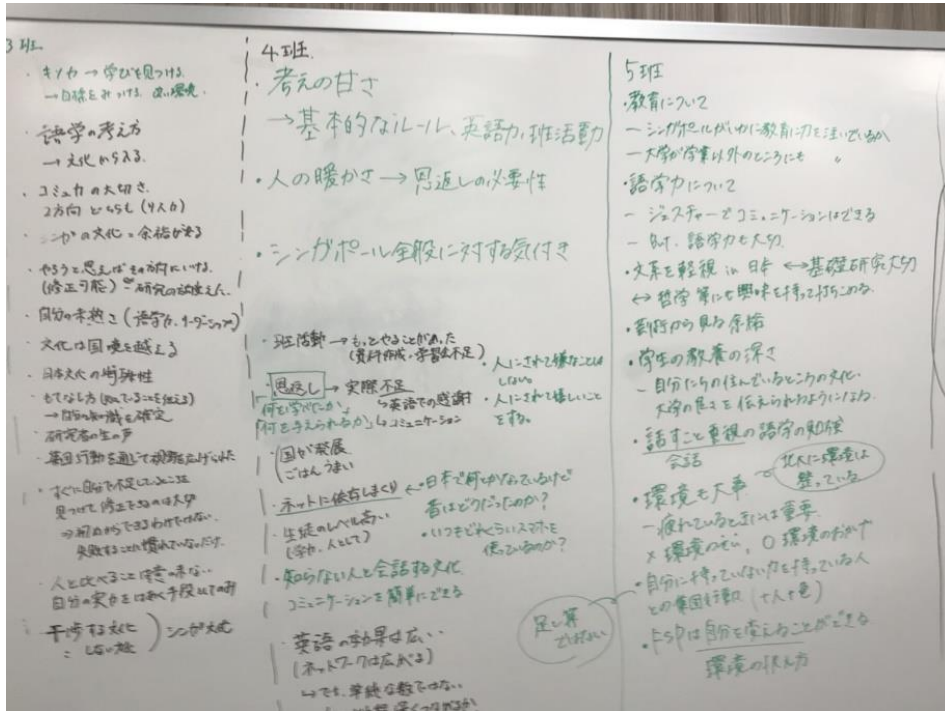 3班
→ 学びを見つける
語学の考え方
→ 文化から入る
・コミュ力の大切さ
2方向 どちらも
の文化 = 余裕がある
・やろうと思えばその方向にいける
(修正可能)
・自分の未熟さ (語学力、リーダーシップ)
文化は国境を越える
・日本文化の特殊性
・もてなし方 (知っていることを伝える)
→ 自分の知識を確定
・研究者の生の声
・集団行動を通じて視野を広げられた
・すぐに自分で不足しているところを
見つけて修正するのは大切
→ 初めからできるわけではない
失敗することに慣れていないだけ
・人と比べることは意味ない
自分の実力を
干渉する文化
しない文化
シンガ文化
4班.
・考えの甘さ
→ 基本的なルール、英語力、班活動
・人の暖かさ → 恩返しの必要性
・シンガポール全般に対する気付き
・班活動 → もっとやることがあった
(資料作成、学習も不足)
・恩返し → 実際不足
↳ 英語での感謝
↳ コミュニケーション
何を学べたか
何を与えられるか
・人にされて嫌なことは
しない。
・人にされて嬉しいこと
をする。
・国が発展
ごはんうまい
・ネットに依存しまくり ← ・日本で何とかなっているけど
昔はどうだったのか?
・いつもどれくらいスマホを
使っているのか?
・生徒のレベル高い
(学力、人として)
・知らない人と会話する文化
コミュニケーションを簡単にできる
・英語の効果は広い
(ネットワークは広がる)
↳ でも、単純な数ではない
5班
・教育について
– シンガポールがいかに教育に力を注いでいるか
– 大学が学業以外のところにも 〃
・語学力について
– ジェスチャーでコミュニケーションはできる
– but、語学力も大切
・文系を軽視 in 日本 ↔ 基礎研究大切
↔ 哲学等にも興味を持って打ちこめる
から見る余裕
・学生の教養の深さ
– 自分たちの住んでいるところの文化、
大学の良さを伝えられるようになる
・話すこと重視の語学の勉強
会話
・環境も大事
北大に環境は
整っている
– 疲れているときには重要
× 環境のせい、○ 環境のおかげ
・自分に持っていない力を持っている人
との集団行動 (十人十色)
足し算
ではない
・FSPは自分を変えることができる
環境の